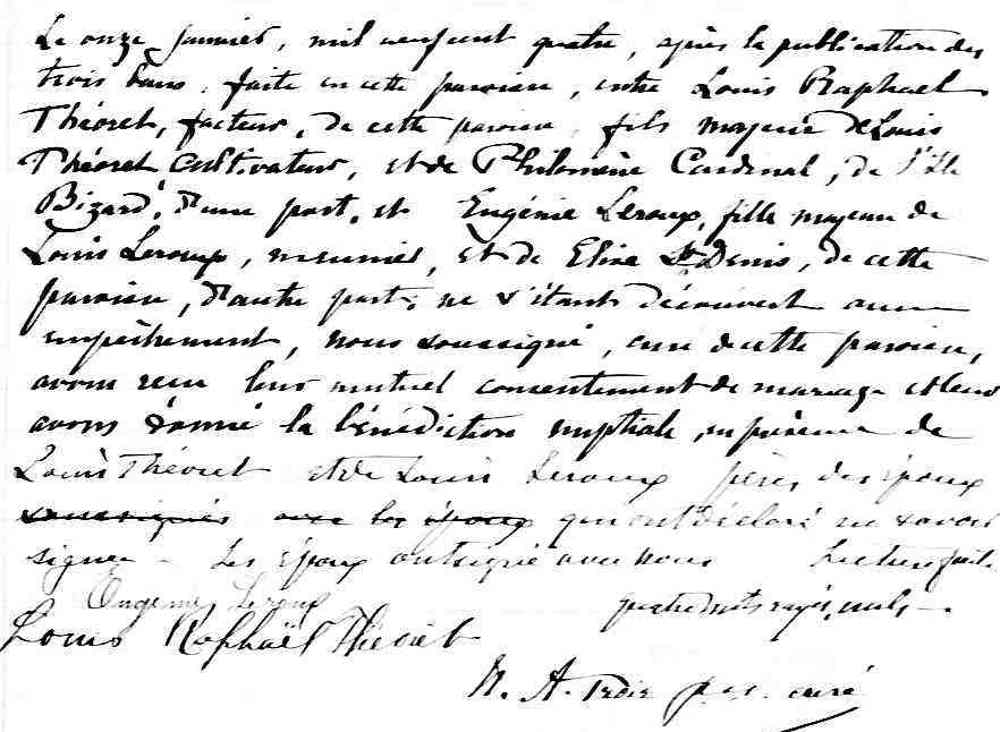 Le onze janvier, mil neuf cent quatre, après la publication des
trois bans, faite en cette paroisse, entre Louis Raphael
Théoret, facteur, de cette paroisse, fils majeur de Louis
Théoret cultivateur, et de Philomène Cardinal, de l'Ile
Bizard, d'une part, et Eugénie Leroux, fille majeure de
Louis Leroux, meunier, et de Elise St Denis, de cette
paroisse, d'autre part; ne s'étant découvert aucun
empêchement, nous soussigné, curé de cette paroisse,
avons reçu leur mutuel consentement de mariage et leur
avons donné la bénédiction nuptiale, en présence de
Louis Théoret et de Louis Leroux pères des époux
soussignés avec les époux qui ont déclaré ne savoir
signer - Les époux ont signé avec nous Lecture faite.
Eugénie Leroux quatre mots rayés nuls -.
Louis Raphaël Théorêt
N. A. Troie p.s.s. curé